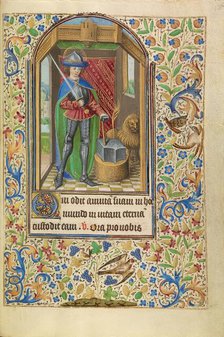 Qui odit animam suam in hoc
mundo in vitam eternam
custodit eam. V. Ora pro nobis